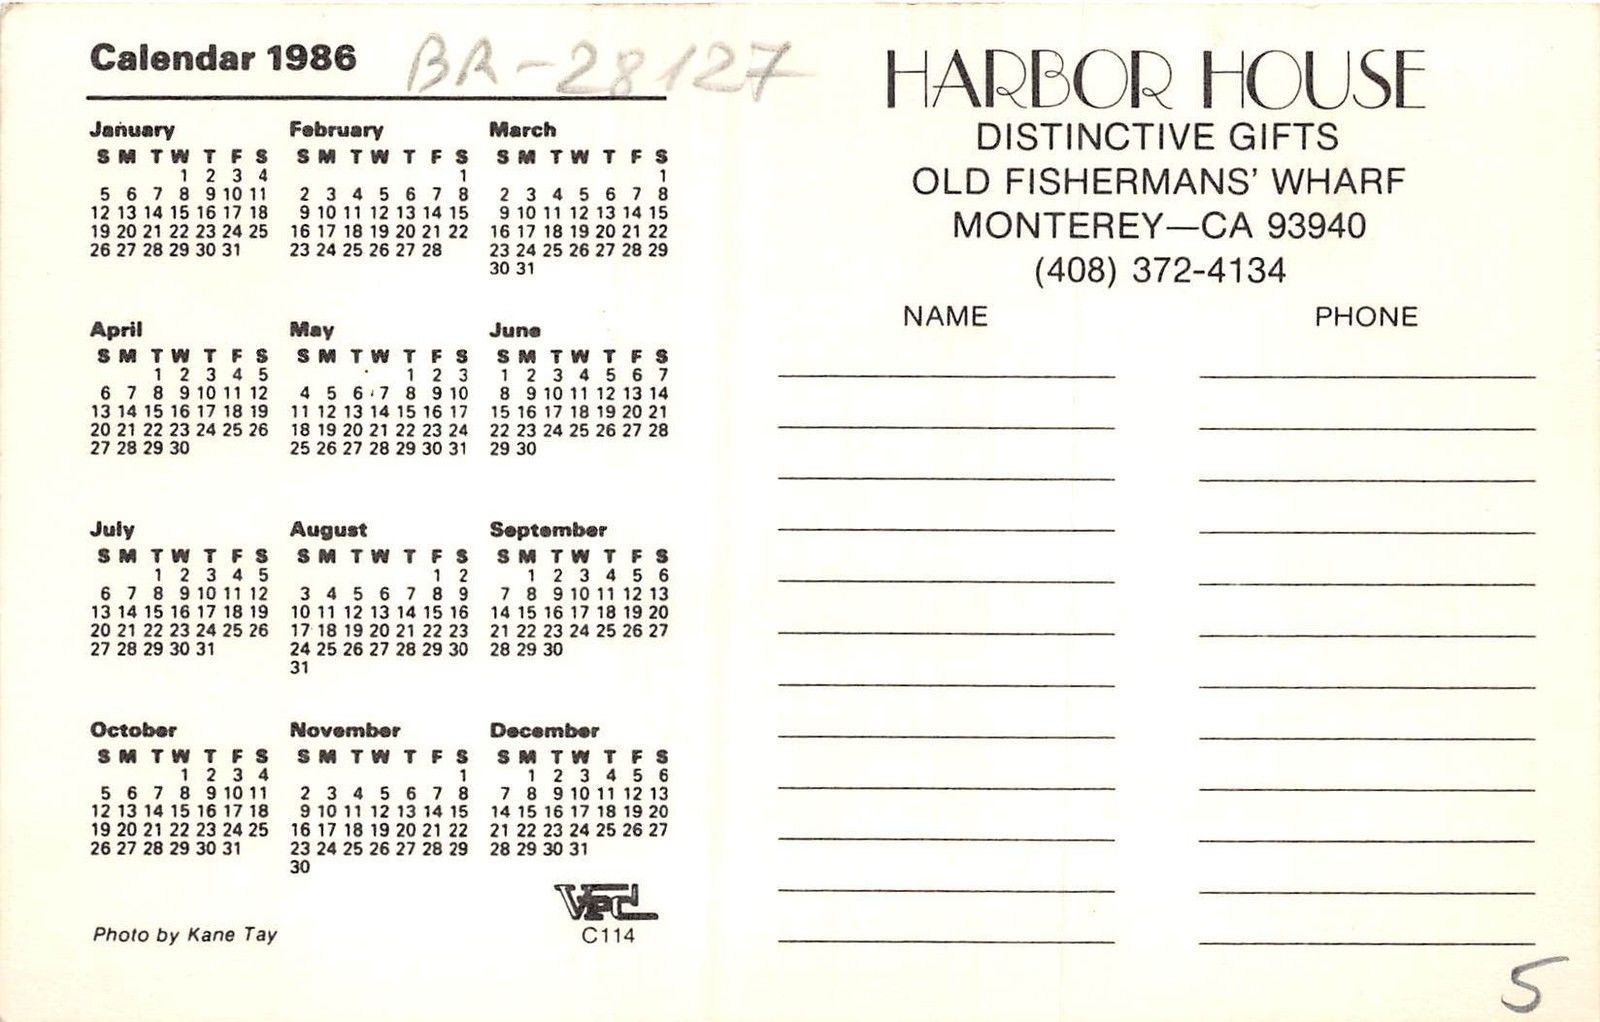 Calendar 1986
BR-28127
January
S M T W T F S
1 2 3 4
5 6 7 8 9 10 11
12 13 14 15 16 17 18
19 20 21 22 23 24 25
26 27 28 29 30 31
February
S M T W T F S
1
2 3 4 5 6 7 8
9 10 11 12 13 14 15
16 17 18 19 20 21 22
23 24 25 26 27 28
March
S M T W T F S
1
2 3 4 5 6 7 8
9 10 11 12 13 14 15
16 17 18 19 20 21 22
23 24 25 26 27 28 29
30 31
April
S M T W T F S
1 2 3 4 5
6 7 8 9 10 11 12
13 14 15 16 17 18 19
20 21 22 23 24 25 26
27 28 29 30
May
S M T W T F S
1 2 3
4 5 6 7 8 9 10
11 12 13 14 15 16 17
18 19 20 21 22 23 24
25 26 27 28 29 30 31
June
S M T W T F S
1 2 3 4 5 6 7
8 9 10 11 12 13 14
15 16 17 18 19 20 21
22 23 24 25 26 27 28
29 30
July
S M T W T F S
1 2 3 4 5
6 7 8 9 10 11 12
13 14 15 16 17 18 19
20 21 22 23 24 25 26
27 28 29 30 31
August
S M T W T F S
1 2
3 4 5 6 7 8 9
10 11 12 13 14 15 16
17 18 19 20 21 22 23
24 25 26 27 28 29 30
31
September
S M T W T F S
1 2 3 4 5 6
7 8 9 10 11 12 13
14 15 16 17 18 19 20
21 22 23 24 25 26 27
28 29 30
October
S M T W T F S
1 2 3 4
5 6 7 8 9 10 11
12 13 14 15 16 17 18
19 20 21 22 23 24 25
26 27 28 29 30 31
November
S M T W T F S
1
2 3 4 5 6 7 8
9 10 11 12 13 14 15
16 17 18 19 20 21 22
23 24 25 26 27 28 29
30
December
S M T W T F S
1 2 3 4 5 6
7 8 9 10 11 12 13
14 15 16 17 18 19 20
21 22 23 24 25 26 27
28 29 30 31
Photo by Kane Tay
C114
HARBOR HOUSE
DISTINCTIVE GIFTS
OLD FISHERMANS' WHARF
MONTEREY—CA 93940
(408) 372-4134
NAME PHONE
5